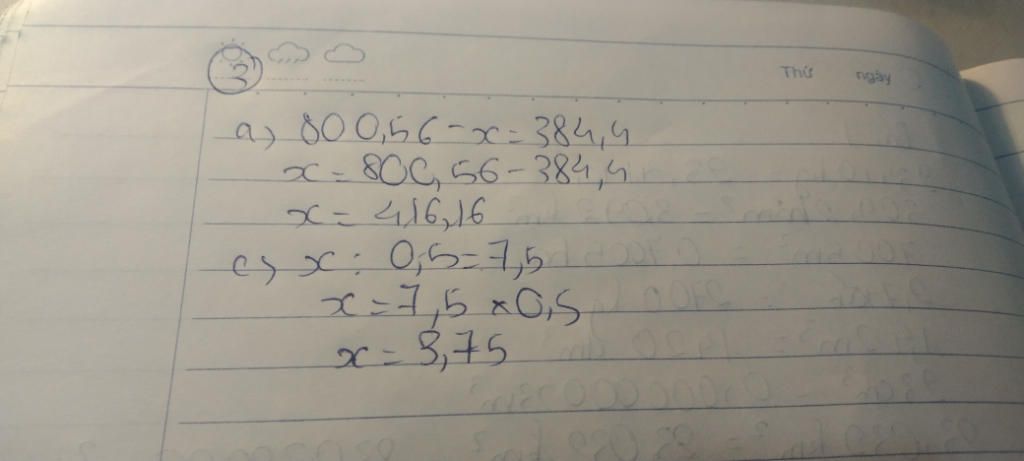 Thứ ngày
3
a) 800,56 - x = 384,4
x = 800,56 - 384,4
x = 416,16
c) x : 0,5 = 7,5
x = 7,5 x 0,5
x = 3,75